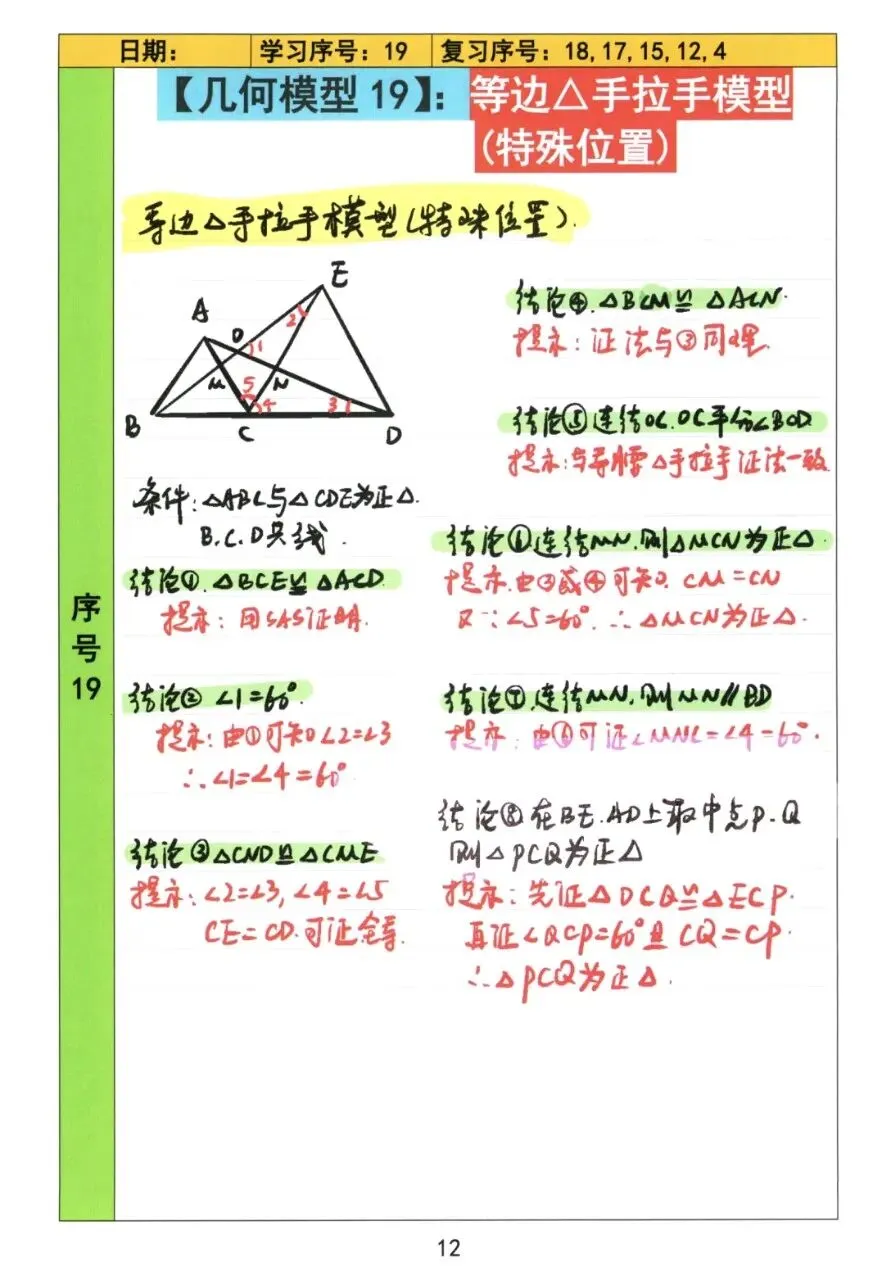 日期：
学习序号：19
复习序号：18,17,15,12,4
【几何模型 19】：等边△手拉手模型
(特殊位置)
序号19
等边△手拉手模型(特殊位置).
E
A
O
1
2
M
5
N
4
3
B
C
D
条件:△ABC与△CDE为正△.
B.C.D共线.
结论①.△BCE≌△ACD.
提示：用SAS证明.
结论② ∠1=60°
提示：由①可知∠2=∠3
∴∠1=∠4=60°
结论③△CND≌△CME
提示：∠2=∠3, ∠4=∠5
CE=CD.可证全等.
结论④.△BCM≌△ACN.
提示：证法与③同理.
结论⑤连结OC.OC平分∠BOD.
提示:与等腰△手拉手证法一致
结论⑥.连结MN.则△MCN为正△
提示.由③或④可知. CM=CN
又∵∠5=60°.∴△MCN为正△.
结论⑦.连结MN.则MN∥BD
提示：由⑥可证∠MNC=∠4=60°.
结论⑧在BE.AD上取中点P.Q
则△PCQ为正△
提示：先证△DCQ≌△ECP.
再证∠QCP=60°且CQ=CP.
∴△PCQ为正△.
12